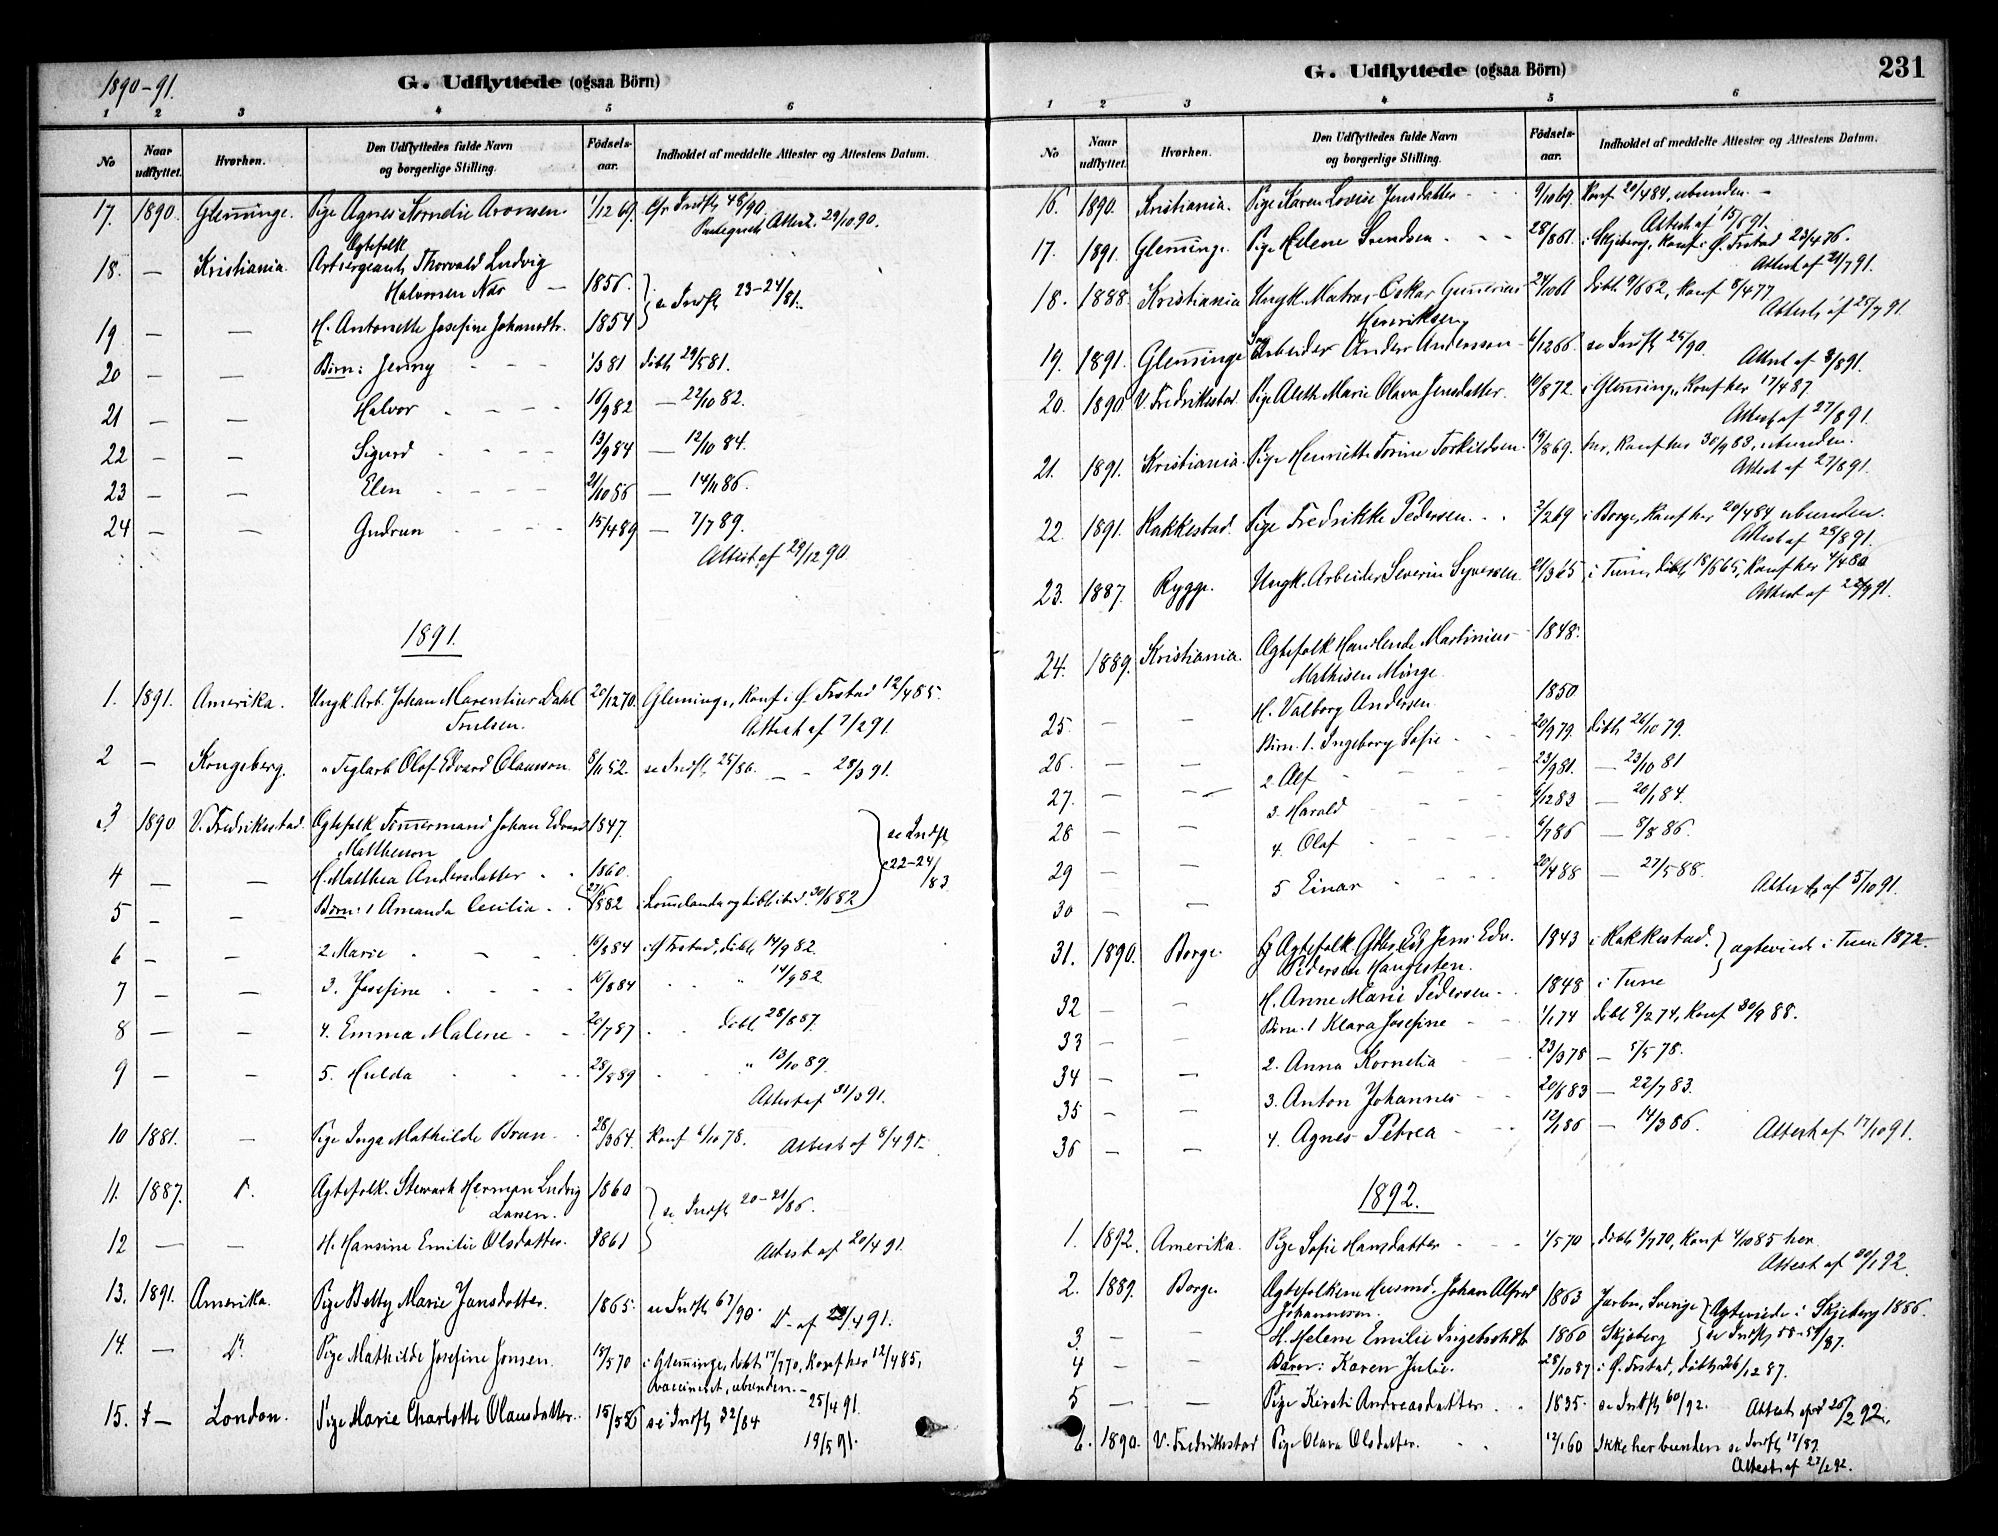 1890-91.
G. Udflyttede (ogsaa Börn)
1 2 3 4 5 6
No Naar udflyttet. Hvorhen. Den Udflyttedes fulde Navn og borgerlige Stilling. Födsels-aar. Indholdet af meddelte Attester og Attestens Datum.
17. 1890. Glemminge. Pige Agnes Aronsen 1/12 69. Cfr Indfl. 48/90.
Attest. 29/10 90.
Ægtefolk
18. — Kristiania. Thorvald Ludvig
Halvorsen Næs — 1856. se Indfl. 23-24/81.
19 — — H. Antonette Josefine Johansdtr. 1854
20 — — Börn: Jenny 1/3 81 döbt 29/5 81.
21 — — Halvor 16/9 82 — 22/10 82.
22 — — Sigurd 13/9 84 — 12/10 84.
23 — — Elen 21/10 86 — 14/11 86.
24 — — Gudrun 15/4 89 — 7/7 89.
Attest af 29/12 90
1891.
1. 1891. Amerika. Ungk. Arb. Johan Marentius Dahl 20/12 70. Glemminge, Konf. i Ø. Frstad 12/4 85.
Truelsen. Attest af 7/2 91.
2 — Kongsberg. " Teglarb. Olof Edvard Olausson 8/11 52. se Indfl. 25/86. — 28/3 91.
3 1890 V. Fredrikstad. Ægtefolk Tömmermand Johan Edvard 1847.
Matthesson se Indfl.
4 — — H. Matthea Andersdatter 1860. 22-24/83
5 — — Börn: 1 Amanda Cecilia 27/5 82 döbt ibid. 30/6 82
6 — — 2 Marie 16/8 84 i Ø Frstad, döbt 14/9 82.
7 — — 3. Josefine 16/8 84 " 14/9 82
8 — — 4. Emma Malene 20/7 87 döbt 28/8 87.
9 — — 5. Hulda 28/8 89 " 13/10 89.
Attest af 31/3 91.
10 1881. — Pige Inga Mathilde Brun 28/3 64. Konf 6/10 78. Attest af 8/4 91.
11. 1887. D. Ægtefolk. Stewart Herman Ludvig 1860
Larsen. se Indfl. 20-21/86.
12 — — H. Hansine Emilie Olsdatter. 1861
Attest af 20/4 91.
13. 1891. Amerika. Pige Betty Marie Jansdotter. 1865. se Indfl 67/90. D. af 23/4 91.
14. — D. Pige Mathilde Josefine Jonsen. 18/5 70 i Glemminge, döbt 17/7 70, Konf her 12/4 85,
vaccineret, ubunden. — 25/4 91.
15. — London. Pige Marie Charlotte Olausdatter. 15/5 56 se Indfl 32/84
19/5 91.
G. Udflyttede (ogsaa Börn)
231
1 2 3 4 5 6
No Naar udflyttet. Hvorhen. Den Udflyttedes fulde Navn og borgerlige Stilling. Födsels-aar. Indholdet af meddelte Attester og Attestens Datum.
16. 1890. Kristiania. Pige Karen Lovise Jensdatter 9/10 69. Konf 20/4 84, ubunden. —
Attest af 15/6 91.
17. 1891. Glemminge. Pige Helene Svendsen 28/8 61 i Skjeberg, Konf i Ø. Frstad 23/4 76.
Attest af 21/7 91.
18. 1888. Kristiania Ungk. Matros Oskar Gunerius 24/10 61 döbt 9/6 62, Konf 8/4 77
Henriksen Attest af 25/7 91.
19. 1891. Glemminge Arbeider Anders Andersson 6/12 66. se Indfl 25/90.
Attest af 8/8 91.
20. 1890 V. Fredrikstad. Pige Aleth Marie Olava Jensdatter. 10/8 72. i Glemminge, Konf her 17/4 87.
Attest af 27/8 91.
21. 1891. Kristiania. Pige Henriette Torine Torkildsen 18/8 69. her, Konf her 30/9 83, ubunden.
Attest af 27/8 91.
22. 1891. Rakkestad. Pige Fredrikke Pedersen. 2/2 69 i Borge, Konf her 20/4 84 ubunden.
Attest af 28/8 91.
23. 1887. Rygge. Ungk. Arbeider Severin Syversen. 21/3 65. i Tune, döbt 18/6 65, Konf her 4/4 80
Attest af 22/9 91.
24. 1889. Kristiania. Ægtefolk Handlende Martinius 1848.
Mathisen Minge.
25 — — H. Valborg Andersen 1850
26 — — Börn. 1. Ingeborg Sofie 20/9 79. döbt 26/10 79.
27. — — 2. Alf 23/9 81. — 23/10 81
28 — — 3. Harald 6/12 83 — 20/1 84.
29 — — 4. Olaf 6/7 86 — 8/8 86.
30 — — 5 Einar 20/4 88 — 27/5 88.
Attest af 5/10 91.
31. 1890. Borge. Ægtefolk Jens Edv. 1843 i Rakkestad. ægteviede i Tune 1872.
Pedersen Haugesten.
32 — — H. Anne Marie Pedersen 1848 i Tune
33 — — Börn. 1 Klara Josefine 1/1 74 döbt 8/2 74, Konf 30/9 88.
34 — — 2. Anna Kornelia 23/3 78 — 5/5 78.
35 — — 3. Anton Johannes 20/6 83 — 22/7 83.
36 — — 4. Agnes Petrea 12/1 86 — 14/3 86. Attest af 17/10 91.
1892.
1. 1892. Amerika. Pige Sofie Hansdatter 1/5 70 döbt 3/7 70, Konf 4/10 85 her.
Attest af 20/1 92.
2. 1889. Borge Ægtefolkene Husmd. Johan Alfred 1863 Jarbo, Sverige Ægteviede i Skjeberg 1886.
Johannesson.
3 — — H. Helene Emilie Ingebretsdtr 1860 Skjeberg se Indfl 58-59/87.
4 — — Barn: Karen Julie. 28/10 87 i Ø. Frstad, döbt 26/12 87.
5 — — Pige Kirsti Andreasdatter 1835. se Indfl 60/92. Attest 26/2 92.
6. 1890. V. Fredrikstad Pige Olava Olsdatter. 12/1 60 Ikke her bunden se Indfl 17/87.
Attest af 27/2 92.